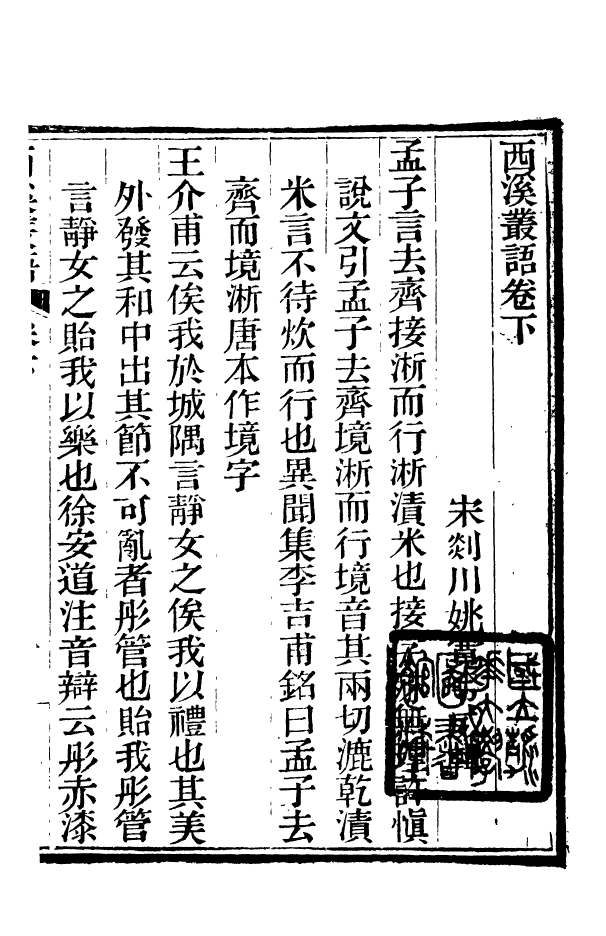 西溪叢語卷下
宋剡川姚
孟子言去齊接淅而行淅漬米也接無理許愼
說文引孟子去齊境淅而行境音其兩切漉乾漬
米言不待炊而行也異聞集李吉甫銘曰孟子去
齊而境淅唐本作境字
王介甫云俟我於城隅言靜女之俟我以禮也其美
外發其和中出其節不可亂者彤管也貽我彤管
言靜女之貽我以樂也徐安道注音辯云彤赤漆